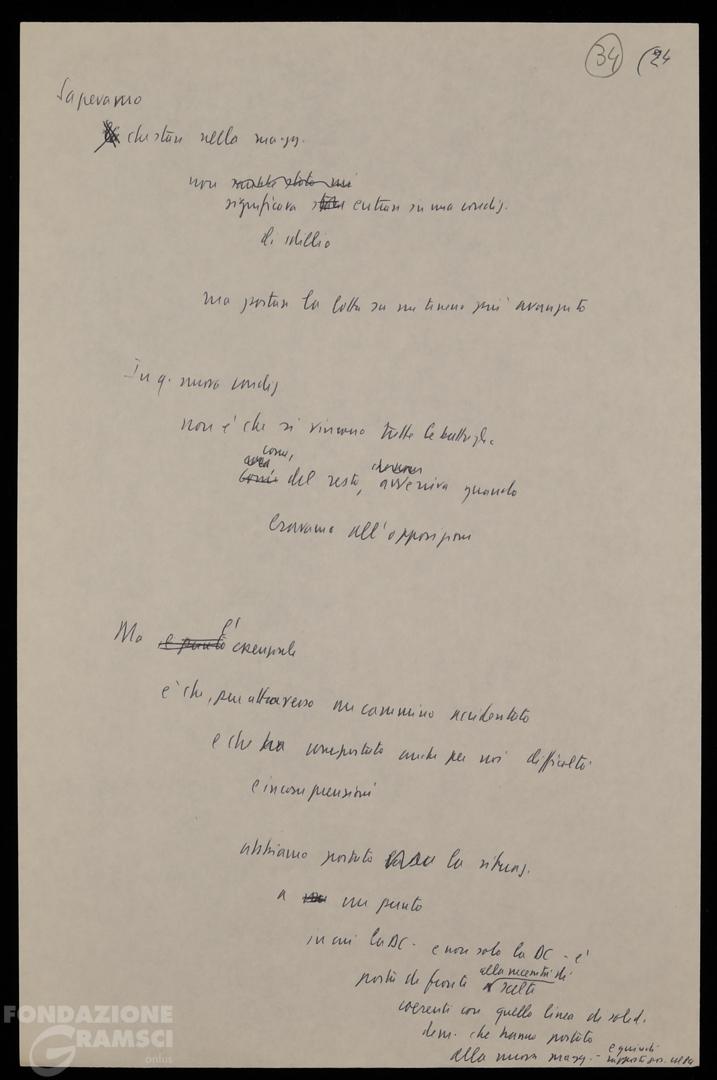 34 (24
Sapevamo
che stare nella magg.
non
significava entrare su una condiz.
di idillio
ma portare la lotta su un terreno più avanzato
In q. nuova condiz
non è che si vincano tutte le battaglie
come,
del resto, avveniva quando
eravamo all'opposizione
Ma l'essenziale
è che, pur attraverso un cammino accidentato
e che ha comportato anche per noi difficoltà
e incomprensioni
abbiamo portato la situaz.
a un punto
in cui la DC - e non solo la DC - è
posta di fronte alla necessità di scelte
coerenti con quella linea di solid.
dem. che hanno portato
alla nuova magg. - e quindi
FONDAZIONE
GRAMSCI
onlus